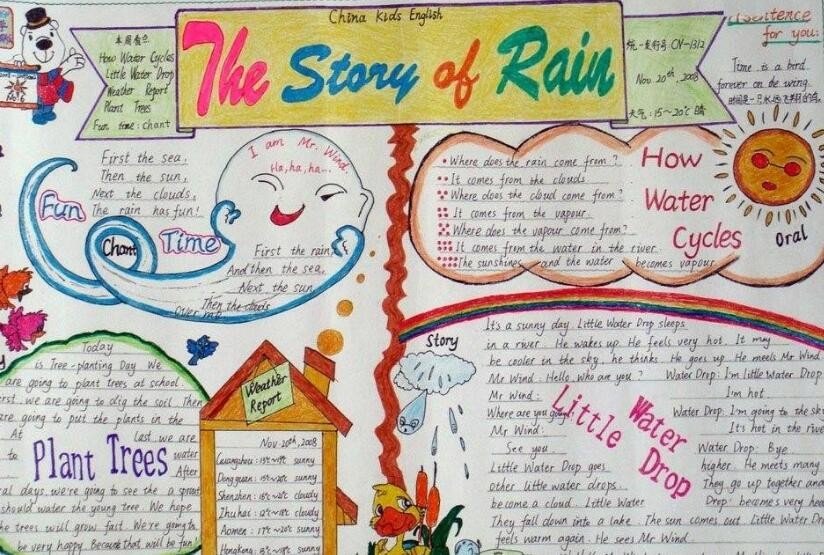 China Kids English
The Story of Rain
本周看点
How Water Cycles
Little Water Drop
Weather Report
Plant Trees
Fun time: chant
CN-1312
Nov. 20th, 2008
天气: 15~20℃ 晴
sentence
for you:
Time is a bird
forever on the wing.
First the sea,
Then the sun,
Next the clouds,
The rain has fun!
Fun
Chant
Time
I am Mr. Wind
Ha, ha, ha...
First the rain,
And then the sea,
Next the sun,
Then the clouds
Over me
How
Water
Cycles
Oral
Where does the rain come from?
It comes from the clouds
Where does the cloud come from?
It comes from the vapour.
Where does the vapour come from?
It comes from the water in the river.
The sunshines and the water becomes vapour
Today
is Tree-planting Day. We
are going to plant trees at school.
rst, we are going to dig the soil. Then
are going to put the plants in the
At last, we are
to water
After
al days, we're going to see the a sprout
should water the young tree. We hope
he trees will grow fast. We're going to
be very happy. Because that will be fun!
Plant Trees
Weather
Report
Nov. 20th, 2008
Guangzhou: sunny
Dongguan: sunny
Shenzhen: cloudy
Zhuhai: cloudy
Aomen: sunny
Hongkong: sunny
Story
Little Water Drop
It's a sunny day. Little Water Drop sleeps
in a river. He wakes up. He feels very hot. It may
be cooler in the sky, he thinks. He goes up. He meets Mr Wind
Mr Wind: Hello, who are you? Water Drop: I'm little Water Drop
Mr Wind: I'm hot.
Where are you going? Water Drop: I'm going to the sk
Mr Wind: It's hot in the rive
See you. Water Drop: Bye
Little Water Drop goes higher. He meets many
other little water drops. They go up together and
become a cloud. Little Water Drop becomes very hea
They fall down into a lake. The sun comes out. Little Water Dr
feels warm again. He sees Mr Wind.